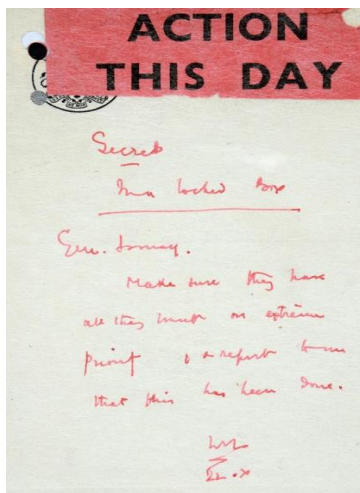 ACTION
THIS DAY
Secret
In a locked Box
Gen. Ismay.
Make sure they have
all they want on extreme
priority & report to me
that this has been done.
WSC
22.x